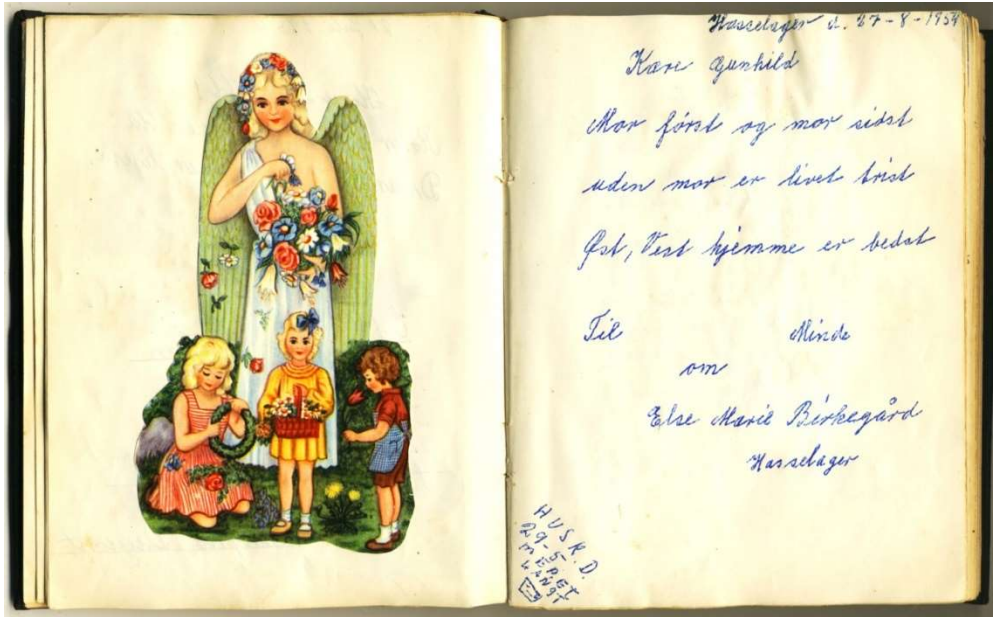 Hasselager d. 27-8-1959
Kære Gunhild
Mor först og mor sidst
uden mor er livet trist
Øst, Vest hjemme er bedst
Til Minde
om
Else Marie Birkegård
Hasselager
HUSK D.
29-5
MEGET
LANGT